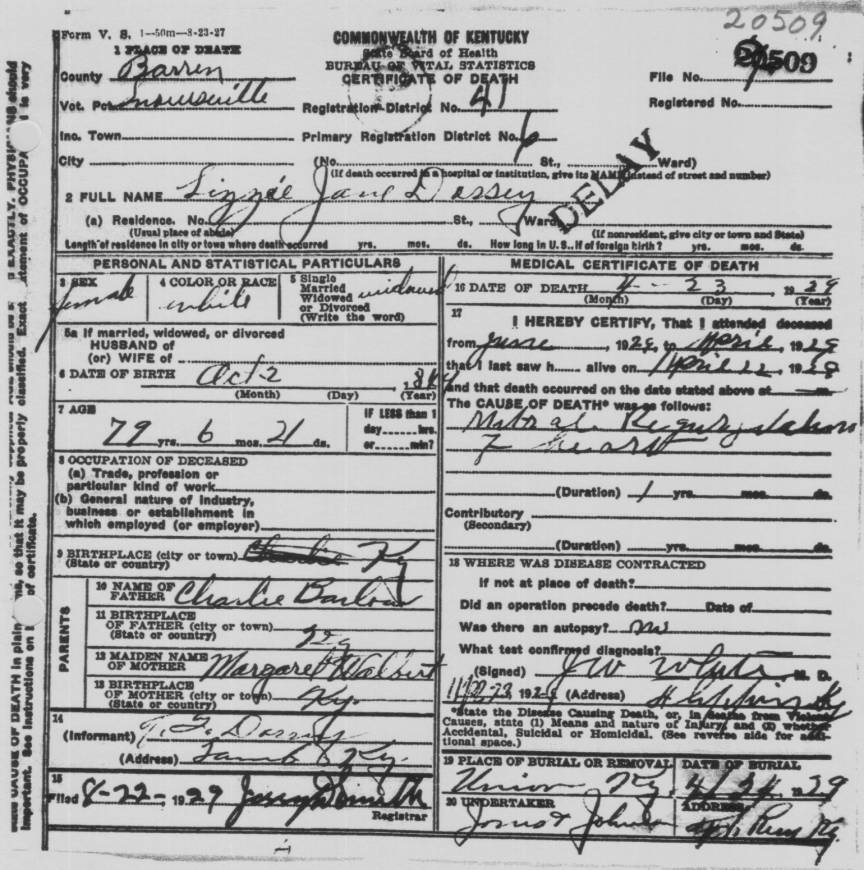 20509
Form V. S. 1—50m—8-23-27
COMMONWEALTH OF KENTUCKY
State Board of Health
BUREAU OF VITAL STATISTICS
CERTIFICATE OF DEATH
1 PLACE OF DEATH
County Barren
Vot. Pct.
Inc. Town
City
Registration District No. 41
Primary Registration District No. 6
(No. St., Ward)
(If death occurred in a hospital or institution, give its NAME instead of street and number)
File No. 20509
Registered No.
DELAY
2 FULL NAME Lizzie Jane Dossey
(a) Residence. No. St., Ward.
(Usual place of abode) (If nonresident, give city or town and State)
Length of residence in city or town where death occurred yrs. mos. ds. How long in U. S., if of foreign birth? yrs. mos. ds.
PERSONAL AND STATISTICAL PARTICULARS
3 SEX female
4 COLOR OR RACE white
5 Single Married Widowed or Divorced (Write the word) widowed
5a If married, widowed, or divorced
HUSBAND of
(or) WIFE of
6 DATE OF BIRTH Oct 2
(Month) (Day) (Year)
7 AGE
79 yrs. 6 mos. 21 ds.
IF LESS than 1
day hrs.
or min?
8 OCCUPATION OF DECEASED
(a) Trade, profession or
particular kind of work
(b) General nature of industry,
business or establishment in
which employed (or employer)
9 BIRTHPLACE (city or town) Charlie Ky
(State or country)
PARENTS
10 NAME OF
FATHER Charlie Barlow
11 BIRTHPLACE
OF FATHER (city or town)
(State or country) Ky
12 MAIDEN NAME
OF MOTHER Margaret Walbert
13 BIRTHPLACE
OF MOTHER (city or town)
(State or country) Ky.
14
(Informant) Dossey
(Address) Lamb Ky.
15
Filed 8-22-, 1929
Registrar
MEDICAL CERTIFICATE OF DEATH
16 DATE OF DEATH 4 - 23 1929
(Month) (Day) (Year)
17
I HEREBY CERTIFY, That I attended deceased
from June, 1928, to April, 1929
that I last saw h alive on April 22, 1929
and that death occurred on the date stated above at m
The CAUSE OF DEATH* was as follows:
Mitral Regurgitation
of heart
(Duration) 1 yrs. mos. ds.
Contributory
(Secondary)
(Duration) yrs. mos. ds.
18 WHERE WAS DISEASE CONTRACTED
if not at place of death?
Did an operation precede death? Date of
Was there an autopsy? no
What test confirmed diagnosis?
(Signed) J W White M. D.
(Address) Ky
*State the Disease Causing Death, or, in deaths from Violent
Causes, state (1) Means and nature of Injury, and (2) whether
Accidental, Suicidal or Homicidal. (See reverse side for addi-
tional space.)
19 PLACE OF BURIAL OR REMOVAL
Union Ky.
DATE OF BURIAL
4/24 1929
20 UNDERTAKER
ADDRESS
Ky.